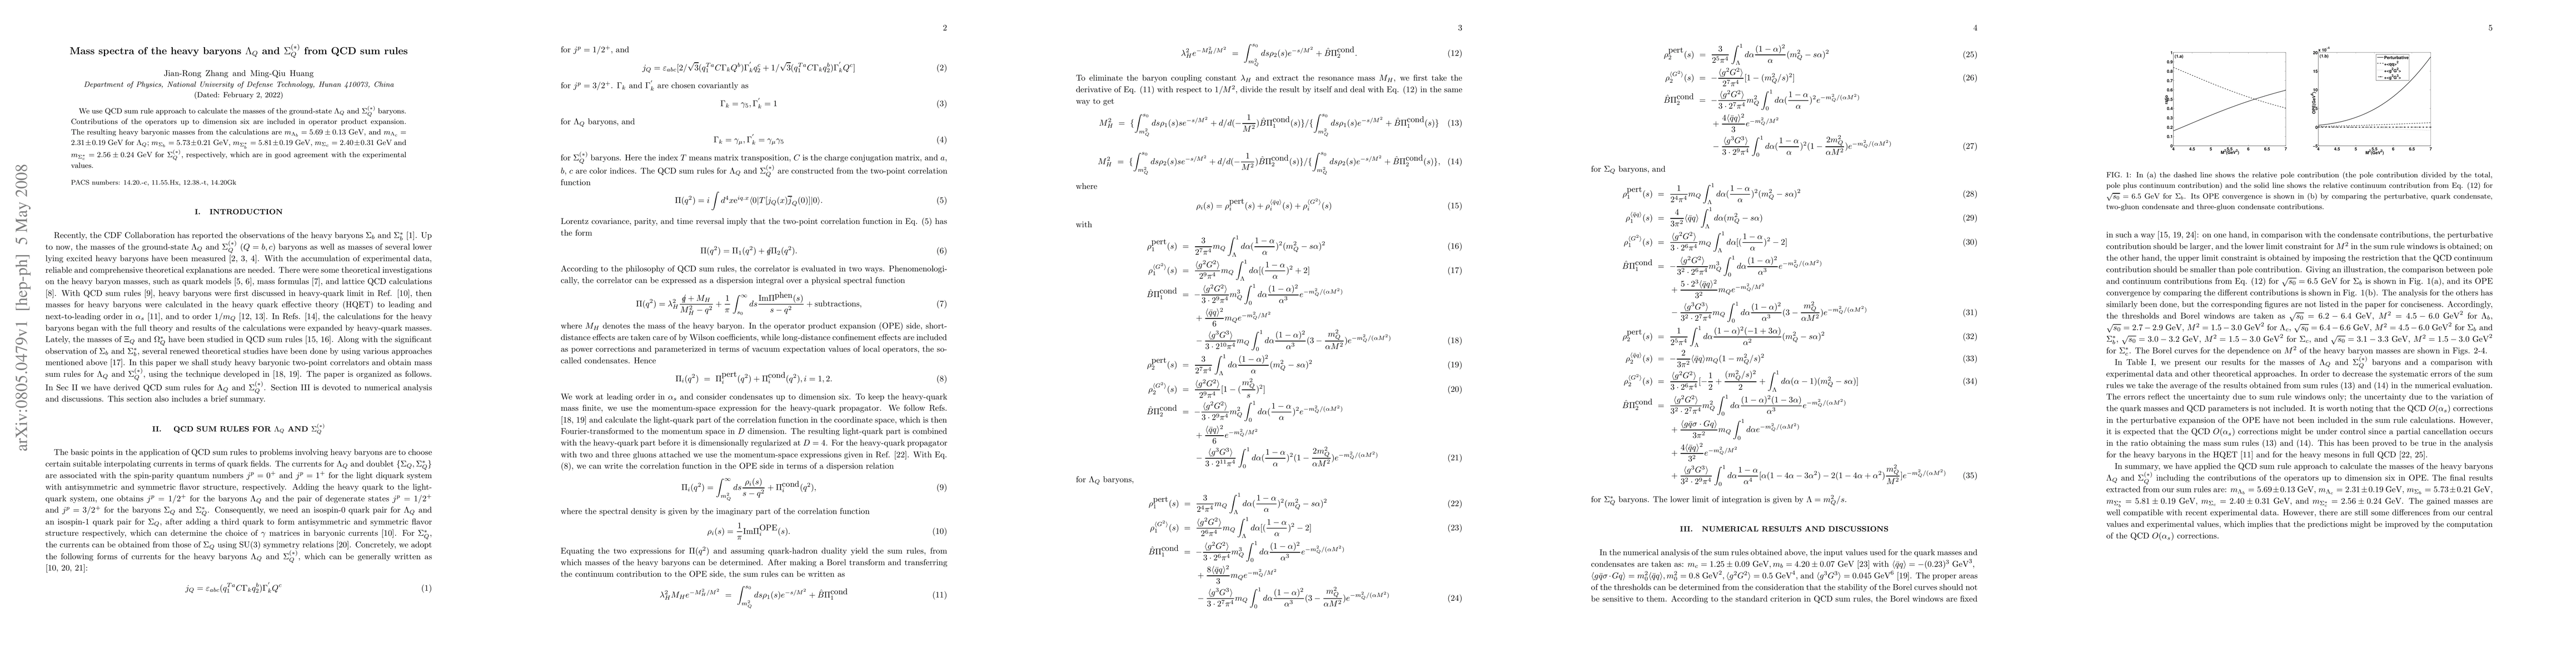 arXiv:0805.0479v1 [hep-ph] 5 May 2008
Mass spectra of the heavy baryons Λ_Q and Σ_Q^(*) from QCD sum rules
Jian-Rong Zhang and Ming-Qiu Huang
Department of Physics, National University of Defense Technology, Hunan 410073, China
(Dated: February 2, 2022)
We use QCD sum rule approach to calculate the masses of the ground-state Λ_Q and Σ_Q^(*) baryons.
Contributions of the operators up to dimension six are included in operator product expansion.
The resulting heavy baryonic masses from the calculations are m_Λb = 5.69 ± 0.13 GeV, and m_Λc =
2.31±0.19 GeV for Λ_Q; m_Σb = 5.73±0.21 GeV, m_Σb* = 5.81±0.19 GeV, m_Σc = 2.40±0.31 GeV and
m_Σc* = 2.56 ± 0.24 GeV for Σ_Q^(*), respectively, which are in good agreement with the experimental
values.
PACS numbers: 14.20.-c, 11.55.Hx, 12.38.-t, 14.20Gk
I. INTRODUCTION
Recently, the CDF Collaboration has reported the observations of the heavy baryons Σ_b and Σ_b* [1]. Up
to now, the masses of the ground-state Λ_Q and Σ_Q^(*) (Q = b, c) baryons as well as masses of several lower
lying excited heavy baryons have been measured [2, 3, 4]. With the accumulation of experimental data,
reliable and comprehensive theoretical explanations are needed. There were some theoretical investigations
on the heavy baryon masses, such as quark models [5, 6], mass formulas [7], and lattice QCD calculations
[8]. With QCD sum rules [9], heavy baryons were first discussed in heavy-quark limit in Ref. [10], then
masses for heavy baryons were calculated in the heavy quark effective theory (HQET) to leading and
next-to-leading order in α_s [11], and to order 1/m_Q [12, 13]. In Refs. [14], the calculations for the heavy
baryons began with the full theory and results of the calculations were expanded by heavy-quark masses.
Lately, the masses of Ξ_Q and Ω_Q* have been studied in QCD sum rules [15, 16]. Along with the significant
observation of Σ_b and Σ_b*, several renewed theoretical studies have been done by using various approaches
mentioned above [17]. In this paper we shall study heavy baryonic two-point correlators and obtain mass
sum rules for Λ_Q and Σ_Q^(*), using the technique developed in [18, 19]. The paper is organized as follows.
In Sec II we have derived QCD sum rules for Λ_Q and Σ_Q^(*). Section III is devoted to numerical analysis
and discussions. This section also includes a brief summary.
II. QCD SUM RULES FOR Λ_Q AND Σ_Q^(*)
The basic points in the application of QCD sum rules to problems involving heavy baryons are to choose
certain suitable interpolating currents in terms of quark fields. The currents for Λ_Q and doublet {Σ_Q, Σ_Q*}
are associated with the spin-parity quantum numbers j^p = 0^+ and j^p = 1^+ for the light diquark system
with antisymmetric and symmetric flavor structure, respectively. Adding the heavy quark to the light-
quark system, one obtains j^p = 1/2^+ for the baryons Λ_Q and the pair of degenerate states j^p = 1/2^+
and j^p = 3/2^+ for the baryons Σ_Q and Σ_Q*. Consequently, we need an isospin-0 quark pair for Λ_Q and
an isospin-1 quark pair for Σ_Q, after adding a third quark to form antisymmetric and symmetric flavor
structure respectively, which can determine the choice of γ matrices in baryonic currents [10]. For Σ_Q*,
the currents can be obtained from those of Σ_Q using SU(3) symmetry relations [20]. Concretely, we adopt
the following forms of currents for the heavy baryons Λ_Q and Σ_Q^(*), which can be generally written as
[10, 20, 21]:
j_Q = ε_abc(q_1^Ta CΓ_k q_2^b)Γ'_k Q^c (1)
2
for j^p = 1/2^+, and
j_Q = ε_abc[2/√3(q_1^Ta CΓ_k Q^b)Γ'_k q_2^c + 1/√3(q_1^Ta CΓ_k q_2^b)Γ'_k Q^c] (2)
for j^p = 3/2^+. Γ_k and Γ'_k are chosen covariantly as
Γ_k = γ_5, Γ'_k = 1 (3)
for Λ_Q baryons, and
Γ_k = γ_μ, Γ'_k = γ_μγ_5 (4)
for Σ_Q^(*) baryons. Here the index T means matrix transposition, C is the charge conjugation matrix, and a,
b, c are color indices. The QCD sum rules for Λ_Q and Σ_Q^(*) are constructed from the two-point correlation
function
Π(q²) = i∫d⁴x e^{iq.x}⟨0|T[j_Q(x)j̄_Q(0)]|0⟩. (5)
Lorentz covariance, parity, and time reversal imply that the two-point correlation function in Eq. (5) has
the form
Π(q²) = Π_1(q²) + q̸Π_2(q²). (6)
According to the philosophy of QCD sum rules, the correlator is evaluated in two ways. Phenomenologi-
cally, the correlator can be expressed as a dispersion integral over a physical spectral function
Π(q²) = λ_H² (q̸ + M_H)/(M_H² − q²) + (1/π)∫_{s_0}^∞ ds ImΠ^phen(s)/(s − q²) + subtractions, (7)
where M_H denotes the mass of the heavy baryon. In the operator product expansion (OPE) side, short-
distance effects are taken care of by Wilson coefficients, while long-distance confinement effects are included
as power corrections and parameterized in terms of vacuum expectation values of local operators, the so-
called condensates. Hence
Π_i(q²) = Π_i^pert(q²) + Π_i^cond(q²), i = 1, 2. (8)
We work at leading order in α_s and consider condensates up to dimension six. To keep the heavy-quark
mass finite, we use the momentum-space expression for the heavy-quark propagator. We follow Refs.
[18, 19] and calculate the light-quark part of the correlation function in the coordinate space, which is then
Fourier-transformed to the momentum space in D dimension. The resulting light-quark part is combined
with the heavy-quark part before it is dimensionally regularized at D = 4. For the heavy-quark propagator
with two and three gluons attached we use the momentum-space expressions given in Ref. [22]. With Eq.
(8), we can write the correlation function in the OPE side in terms of a dispersion relation
Π_i(q²) = ∫_{m_Q²}^∞ ds ρ_i(s)/(s − q²) + Π_i^cond(q²), (9)
where the spectral density is given by the imaginary part of the correlation function
ρ_i(s) = (1/π)ImΠ_i^OPE(s). (10)
Equating the two expressions for Π(q²) and assuming quark-hadron duality yield the sum rules, from
which masses of the heavy baryons can be determined. After making a Borel transform and transferring
the continuum contribution to the OPE side, the sum rules can be written as
λ_H² M_H e^{−M_H²/M²} = ∫_{m_Q²}^{s_0} dsρ_1(s)e^{−s/M²} + B̂Π_1^cond (11)
3
λ_H² e^{−M_H²/M²} = ∫_{m_Q²}^{s_0} dsρ_2(s)e^{−s/M²} + B̂Π_2^cond. (12)
To eliminate the baryon coupling constant λ_H and extract the resonance mass M_H, we first take the
derivative of Eq. (11) with respect to 1/M², divide the result by itself and deal with Eq. (12) in the same
way to get
M_H² = {∫_{m_Q²}^{s_0} dsρ_1(s)se^{−s/M²} + d/d(−1/M²)B̂Π_1^cond(s)}/{∫_{m_Q²}^{s_0} dsρ_1(s)e^{−s/M²} + B̂Π_1^cond(s)} (13)
M_H² = {∫_{m_Q²}^{s_0} dsρ_2(s)se^{−s/M²} + d/d(−1/M²)B̂Π_2^cond(s)}/{∫_{m_Q²}^{s_0} dsρ_2(s)e^{−s/M²} + B̂Π_2^cond(s)}, (14)
where
ρ_i(s) = ρ_i^pert(s) + ρ_i^⟨q̄q⟩(s) + ρ_i^⟨G²⟩(s) (15)
with
ρ_1^pert(s) = 3/(2⁷π⁴) m_Q∫_Λ^1 dα((1−α)/α)²(m_Q² − sα)² (16)
ρ_1^⟨G²⟩(s) = ⟨g²G²⟩/(2⁹π⁴) m_Q∫_Λ^1 dα[((1−α)/α)² + 2] (17)
B̂Π_1^cond = −⟨g²G²⟩/(3·2⁹π⁴) m_Q³∫_0^1 dα (1−α)²/α³ e^{−m_Q²/(αM²)}
+ ⟨q̄q⟩²/6 m_Q e^{−m_Q²/M²}
− ⟨g³G³⟩/(3·2¹⁰π⁴) m_Q∫_0^1 dα (1−α)²/α³ (3 − m_Q²/(αM²))e^{−m_Q²/(αM²)} (18)
ρ_2^pert(s) = 3/(2⁷π⁴)∫_Λ^1 dα (1−α)²/α (m_Q² − sα)² (19)
ρ_2^⟨G²⟩(s) = ⟨g²G²⟩/(2⁹π⁴)[1 − (m_Q²/s)²] (20)
B̂Π_2^cond = −⟨g²G²⟩/(3·2⁹π⁴) m_Q²∫_0^1 dα((1−α)/α)² e^{−m_Q²/(αM²)}
+ ⟨q̄q⟩²/6 e^{−m_Q²/M²}
− ⟨g³G³⟩/(3·2¹¹π⁴)∫_0^1 dα((1−α)/α)²(1 − 2m_Q²/(αM²))e^{−m_Q²/(αM²)} (21)
for Λ_Q baryons,
ρ_1^pert(s) = 3/(2⁴π⁴) m_Q∫_Λ^1 dα((1−α)/α)²(m_Q² − sα)² (22)
ρ_1^⟨G²⟩(s) = ⟨g²G²⟩/(2⁶π⁴) m_Q∫_Λ^1 dα[((1−α)/α)² − 2] (23)
B̂Π_1^cond = −⟨g²G²⟩/(3·2⁶π⁴) m_Q³∫_0^1 dα (1−α)²/α³ e^{−m_Q²/(αM²)}
+ 8⟨q̄q⟩²/3 m_Q e^{−m_Q²/M²}
− ⟨g³G³⟩/(3·2⁷π⁴) m_Q∫_0^1 dα (1−α)²/α³ (3 − m_Q²/(αM²))e^{−m_Q²/(αM²)} (24)
4
ρ_2^pert(s) = 3/(2⁵π⁴)∫_Λ^1 dα (1−α)²/α (m_Q² − sα)² (25)
ρ_2^⟨G²⟩(s) = −⟨g²G²⟩/(2⁷π⁴)[1 − (m_Q²/s)²] (26)
B̂Π_2^cond = −⟨g²G²⟩/(3·2⁷π⁴) m_Q²∫_0^1 dα((1−α)/α)² e^{−m_Q²/(αM²)}
+ 4⟨q̄q⟩²/3 e^{−m_Q²/M²}
− ⟨g³G³⟩/(3·2⁹π⁴)∫_0^1 dα((1−α)/α)²(1 − 2m_Q²/(αM²))e^{−m_Q²/(αM²)} (27)
for Σ_Q baryons, and
ρ_1^pert(s) = 1/(2⁴π⁴) m_Q∫_Λ^1 dα((1−α)/α)²(m_Q² − sα)² (28)
ρ_1^⟨q̄q⟩(s) = 4/(3π²)⟨q̄q⟩∫_Λ^1 dα(m_Q² − sα) (29)
ρ_1^⟨G²⟩(s) = ⟨g²G²⟩/(3·2⁶π⁴) m_Q∫_Λ^1 dα[((1−α)/α)² − 2] (30)
B̂Π_1^cond = −⟨g²G²⟩/(3²·2⁶π⁴) m_Q³∫_0^1 dα (1−α)²/α³ e^{−m_Q²/(αM²)}
+ 5·2³⟨q̄q⟩²/3² m_Q e^{−m_Q²/M²}
− ⟨g³G³⟩/(3²·2⁷π⁴) m_Q∫_0^1 dα (1−α)²/α³ (3 − m_Q²/(αM²))e^{−m_Q²/(αM²)} (31)
ρ_2^pert(s) = 1/(2⁵π⁴)∫_Λ^1 dα (1−α)²(−1+3α)/α² (m_Q² − sα)² (32)
ρ_2^⟨q̄q⟩(s) = −2/(3π²)⟨q̄q⟩m_Q(1 − m_Q²/s)² (33)
ρ_2^⟨G²⟩(s) = ⟨g²G²⟩/(3·2⁶π⁴)[−1/2 + (m_Q²/s)²/2 + ∫_Λ^1 dα(α − 1)(m_Q²/s)] (34)
B̂Π_2^cond = ⟨g²G²⟩/(3²·2⁷π⁴) m_Q²∫_0^1 dα (1−α)²(1−3α)/α³ e^{−m_Q²/(αM²)}
+ ⟨gq̄σ·Gq⟩/(3π²) m_Q∫_0^1 dαe^{−m_Q²/(αM²)}
+ 4⟨q̄q⟩²/3² e^{−m_Q²/M²}
+ ⟨g³G³⟩/(3²·2⁹π⁴)∫_0^1 dα (1−α)/α⁴ [α(1 − 4α − 3α²) − 2(1 − 4α + α²)m_Q²/M²]e^{−m_Q²/(αM²)} (35)
for Σ_Q* baryons. The lower limit of integration is given by Λ = m_Q²/s.
III. NUMERICAL RESULTS AND DISCUSSIONS
In the numerical analysis of the sum rules obtained above, the input values used for the quark masses and
condensates are taken as: m_c = 1.25 ± 0.09 GeV, m_b = 4.20 ± 0.07 GeV [23] with ⟨q̄q⟩ = −(0.23)³ GeV³,
⟨gq̄σ·Gq⟩ = m_0²⟨q̄q⟩, m_0² = 0.8 GeV², ⟨g²G²⟩ = 0.5 GeV⁴, and ⟨g³G³⟩ = 0.045 GeV⁶ [19]. The proper areas
of the thresholds can be determined from the consideration that the stability of the Borel curves should not
be sensitive to them. According to the standard criterion in QCD sum rules, the Borel windows are fixed
5
(1.a)
(1.b)
Perturbative
M²(GeV²)
M²(GeV²)
FIG. 1: In (a) the dashed line shows the relative pole contribution (the pole contribution divided by the total,
pole plus continuum contribution) and the solid line shows the relative continuum contribution from Eq. (12) for
√s_0 = 6.5 GeV for Σ_b. Its OPE convergence is shown in (b) by comparing the perturbative, quark condensate,
two-gluon condensate and three-gluon condensate contributions.
in such a way [15, 19, 24]: on one hand, in comparison with the condensate contributions, the perturbative
contribution should be larger, and the lower limit constraint for M² in the sum rule windows is obtained; on
the other hand, the upper limit constraint is obtained by imposing the restriction that the QCD continuum
contribution should be smaller than pole contribution. Giving an illustration, the comparison between pole
and continuum contributions from Eq. (12) for √s_0 = 6.5 GeV for Σ_b is shown in Fig. 1(a), and its OPE
convergence by comparing the different contributions is shown in Fig. 1(b). The analysis for the others has
similarly been done, but the corresponding figures are not listed in the paper for conciseness. Accordingly,
the thresholds and Borel windows are taken as √s_0 = 6.2 − 6.4 GeV, M² = 4.5 − 6.0 GeV² for Λ_b,
√s_0 = 2.7 − 2.9 GeV, M² = 1.5 − 3.0 GeV² for Λ_c, √s_0 = 6.4 − 6.6 GeV, M² = 4.5 − 6.0 GeV² for Σ_b and
Σ_b*, √s_0 = 3.0 − 3.2 GeV, M² = 1.5 − 3.0 GeV² for Σ_c, and √s_0 = 3.1 − 3.3 GeV, M² = 1.5 − 3.0 GeV²
for Σ_c*. The Borel curves for the dependence on M² of the heavy baryon masses are shown in Figs. 2-4.
In Table I, we present our results for the masses of Λ_Q and Σ_Q^(*) baryons and a comparison with
experimental data and other theoretical approaches. In order to decrease the systematic errors of the sum
rules we take the average of the results obtained from sum rules (13) and (14) in the numerical evaluation.
The errors reflect the uncertainty due to sum rule windows only; the uncertainty due to the variation of
the quark masses and QCD parameters is not included. It is worth noting that the QCD O(α_s) corrections
in the perturbative expansion of the OPE have not been included in the sum rule calculations. However,
it is expected that the QCD O(α_s) corrections might be under control since a partial cancellation occurs
in the ratio obtaining the mass sum rules (13) and (14). This has been proved to be true in the analysis
for the heavy baryons in the HQET [11] and for the heavy mesons in full QCD [22, 25].
In summary, we have applied the QCD sum rule approach to calculate the masses of the heavy baryons
Λ_Q and Σ_Q^(*) including the contributions of the operators up to dimension six in OPE. The final results
extracted from our sum rules are: m_Λb = 5.69±0.13 GeV, m_Λc = 2.31±0.19 GeV, m_Σb = 5.73±0.21 GeV,
m_Σb* = 5.81 ± 0.19 GeV, m_Σc = 2.40 ± 0.31 GeV, and m_Σc* = 2.56 ± 0.24 GeV. The gained masses are
well compatible with recent experimental data. However, there are still some differences from our central
values and experimental values, which implies that the predictions might be improved by the computation
of the QCD O(α_s) corrections.